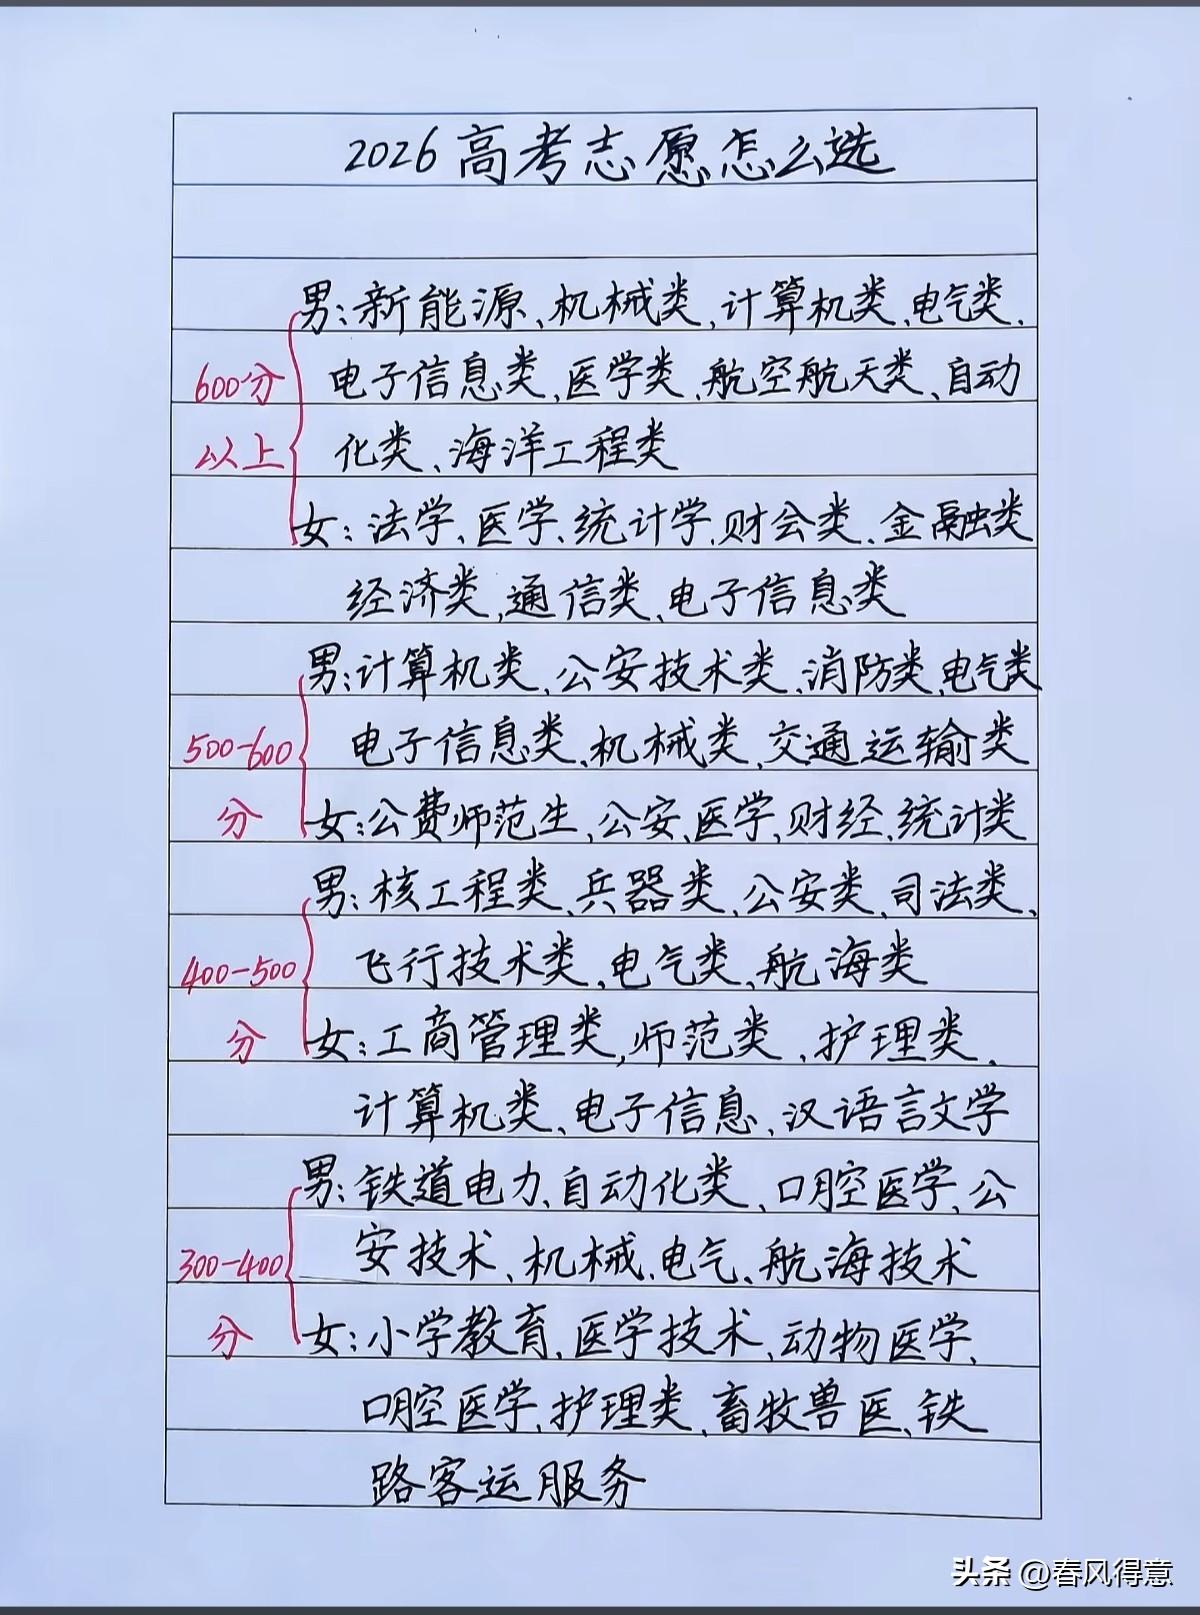 2026高考志愿怎么选
男:新能源、机械类、计算机类、电气类、
600分 电子信息类、医学类、航空航天类、自动
以上 化类、海洋工程类
女:法学、医学、统计学、财会类、金融类
经济类、通信类、电子信息类
男:计算机类、公安技术类、消防类、电气类
500-600 电子信息类、机械类、交通运输类
分 女:公费师范生、公安、医学、财经、统计类
男:核工程类、兵器类、公安类、司法类、
400-500 飞行技术类、电气类、航海类
分 女:工商管理类、师范类、护理类、
计算机类、电子信息、汉语言文学
男:铁道电力、自动化类、口腔医学、公
300-400 安技术、机械、电气、航海技术
分 女:小学教育、医学技术、动物医学、
口腔医学、护理类、畜牧兽医、铁
路客运服务
头条 @春风得意